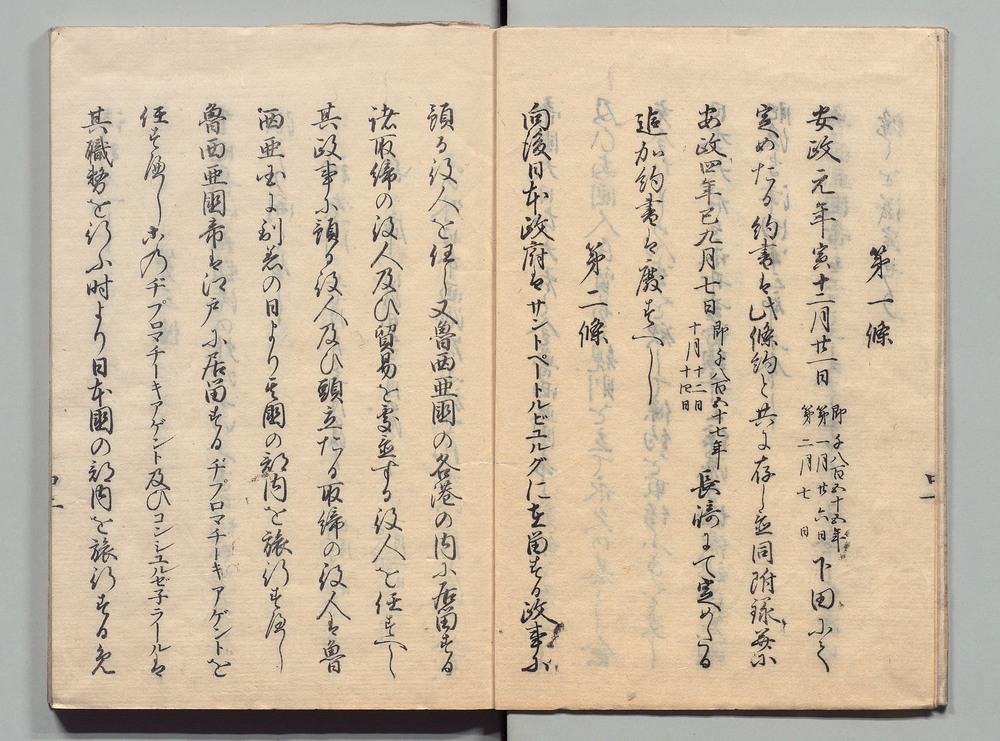 第一條
安政元年寅十二月廿一日
即千八百五十五年
第一月廿六日
第二月七日
下田に
定めたる約書は此條約と共に存し並同附録并に
安政四年巳九月七日
即千八百五十七年
十月十二日
十月廿四日
長崎にて定めたる
追加約書は廢すへし
第二條
向後日本政府はサントペートルビユルグに在留する政事に
預る役人を任し又魯西亜國の各港の内に居留する
諸取締の役人及ひ貿易を處置する役人を任すへし
其政事に預る役人及ひ頭立たる取締の役人は魯
西亜國に到着の日より其國の部内を旅行すへし
魯西亜國帝は江戸に居留するヂプロマチーキアゲントを
任すへし亦乃ヂプロマチーキアゲント及ひコンシユルゼ子ラールは
其職務を行ふ時より日本國の部内を旅行する免